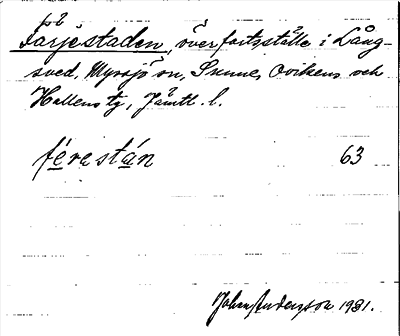 på
Färjestaden, överfartsställe i Lång-
sved, Myssjö sn, Sunne, Ovikens och
Hallens tg, Jämtl. l.
fé̱restá̱n 63
Johan Andersson 1931.